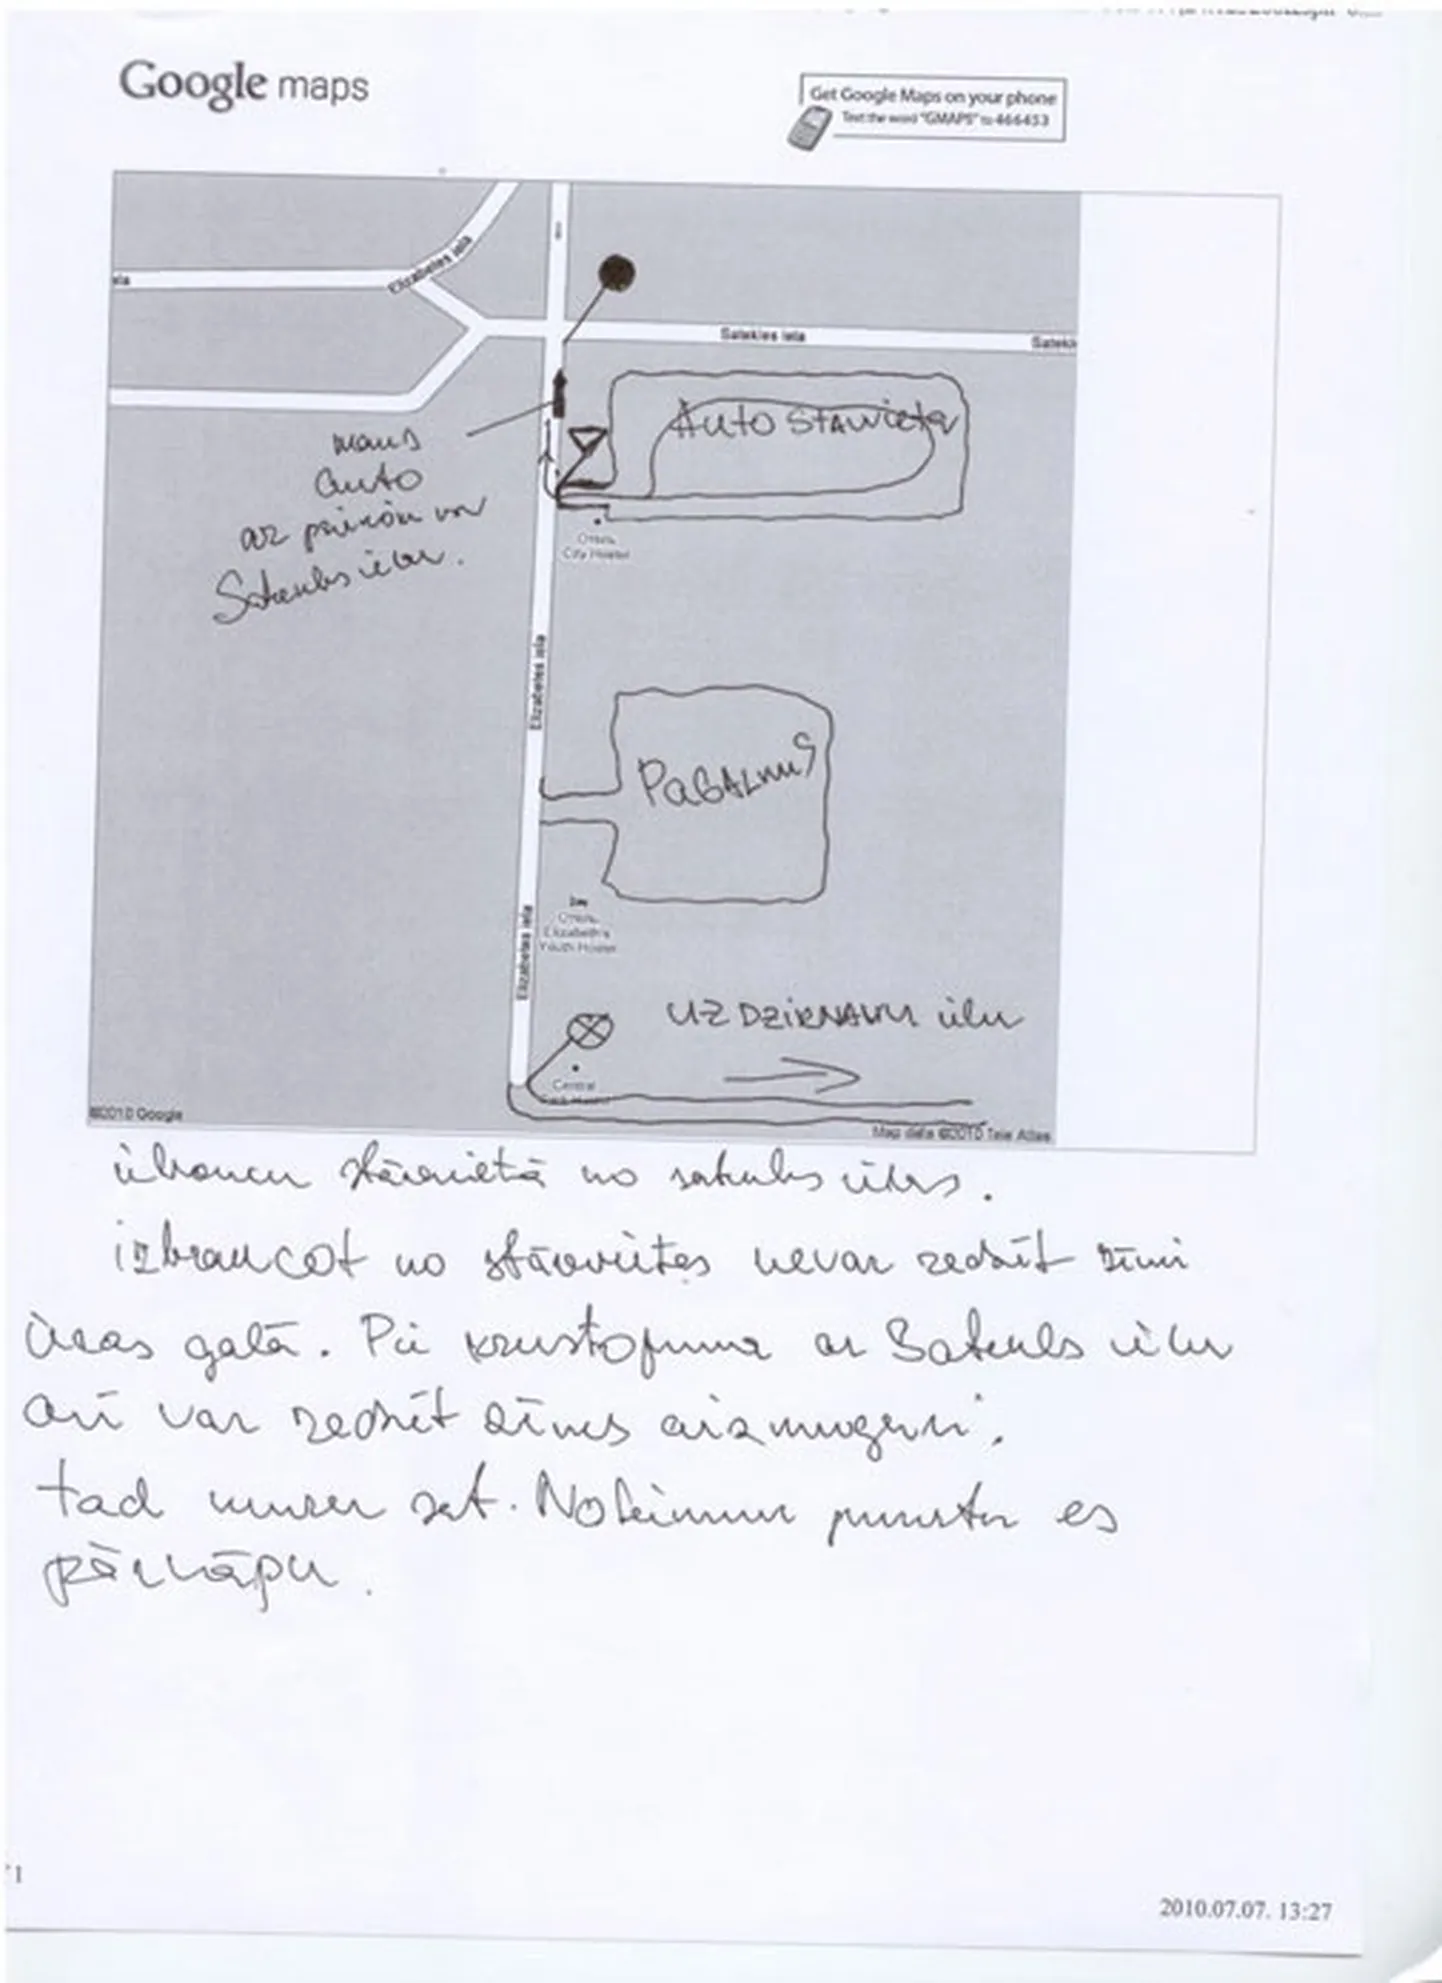 Google maps
Get Google Maps on your phone
Text the word "GMAPS" to 466453
Elizabetes iela
ela
Satekles iela
Satekl
Auto stāvvieta
mans
auto
ar
Satekles ielu.
Отель
City Hostel
Elizabetes iela
Pagalms
Elizabetes iela
Отель
Elizabeth's
Youth Hostel
uz Dzirnavu ielu
Central
©2010 Google
Map data ©2010 Tele Atlas
iebraucu stāvvietā no satekles ielas.
izbraucot no stāvvietas nevar redzēt zīmi
ielas galā. Pie krustojuma ar Satekles ielu
arī var redzēt zīmes aizmuguri,
tad kurer set. Noteikumu punktu es
pārkāpu.
1
2010.07.07. 13:27